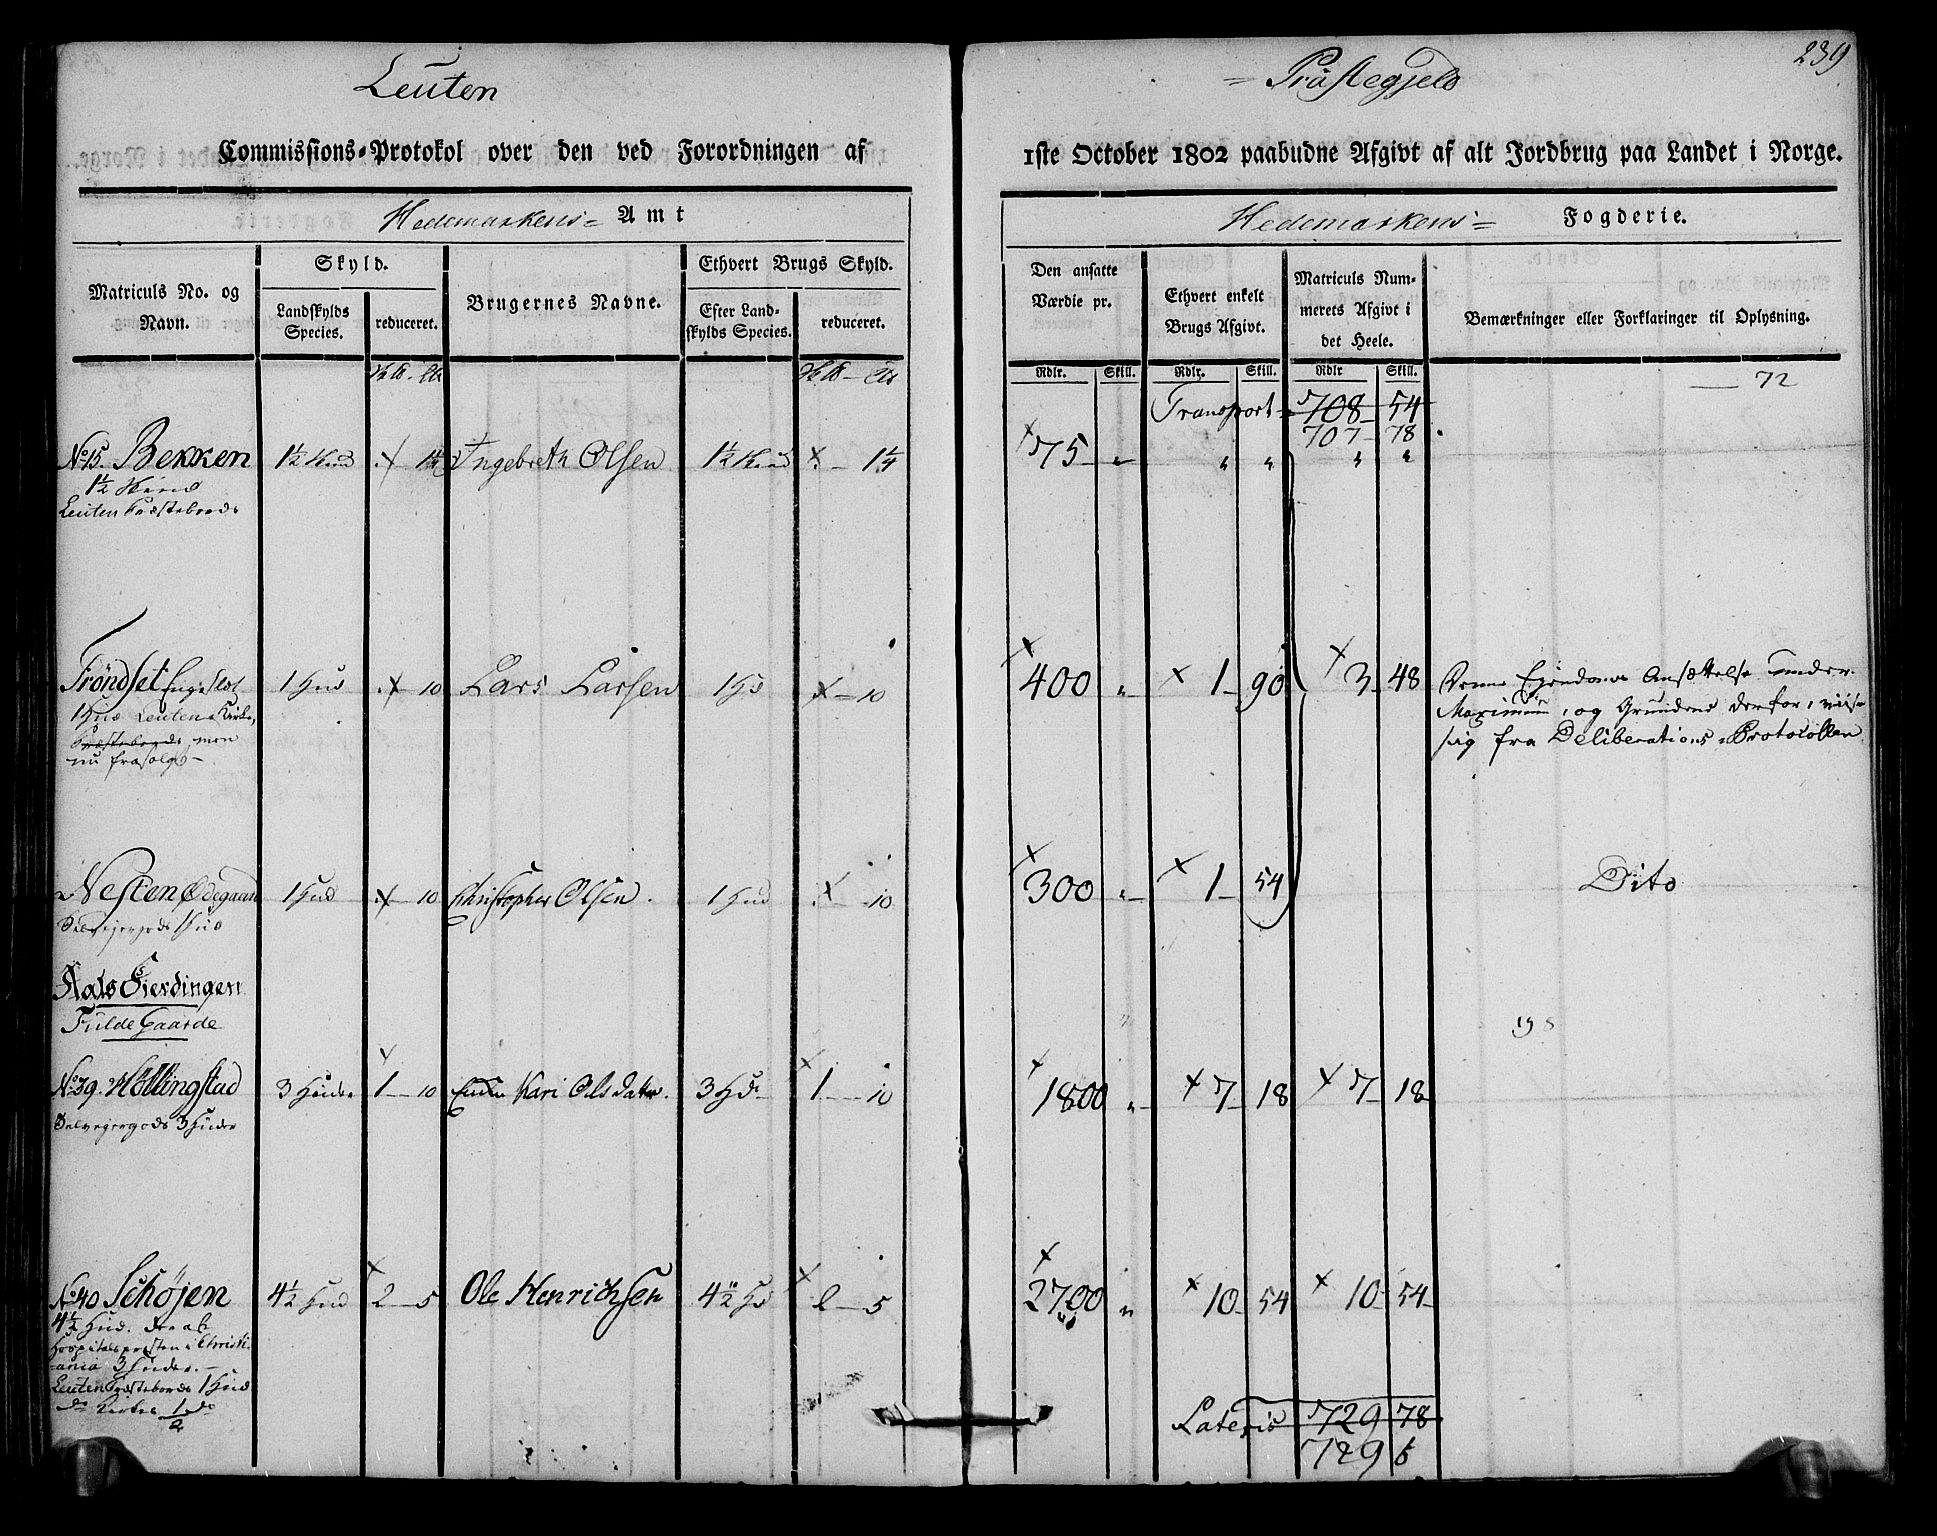 239
Leuten = Præstegjeld
Commissions-Protokol over den ved Forordningen af 1ste October 1802 paabudne Afgivt af alt Jordbrug paa Landet i Norge.
Hedemarkens = Amt
Hedemarkens = Fogderie.
Matriculs No. og Navn.
Skyld.
Landskylds Species.
reduceret.
Brugernes Navne.
Ethvert Brugs Skyld.
Efter Landskylds Species.
reduceret.
Den ansatte Værdie pr.
Ethvert enkelt Brugs Afgivt.
Matriculs Nummerets Afgivt i det Heele.
Bemærkninger eller Forklaringer til Oplysning.
Rdlr. Skill. Rdlr. Skill. Rdlr Skill.
72
Transport 708 54
707 78
No 15. Bekken 1½ Hud 1¼ Ingebreth Olsen 1½ Hud 1¼ 75 " " " " "
1½ Hud
Leuten Præstebord
Tröndset Engeslot 1 Hud 10 Lars Larsen 1 Hd 10 400 " 1 90 3 48
1 Hud Leuten Kirke,
Præstebord men
nu frasolgt
Denne Ejendoms Ansættelse under
Maximum, og Grundene derfor, viise
sig fra Deliberations Protocollen
Nesten Ødegaard 1 Hud 10 Christopher Olsen. 1 Hud 10 300 " 1 54 Dito
Selvejergods 1 Hud
Aads Fierdingen
Fulde Gaarde
No 39. Höllingstad 3 Huder 1 10 Enken Kari Olsdatter. 3 Hd 1 10 1800 " 7 18 7 18
Selvejergods 3 Huder
No 40 Schøjen 4½ Hud 2 5 Ole Henrichsen 4½ Hd 2 5 2700 " 10 54 10 54
4½ Hud. deraf
Hospitalspræsten i Christi-
ania 3 Huder.
Leuten Præstebord 1 Hud
do Kirke ½ do
Lateris 729 78
729 6